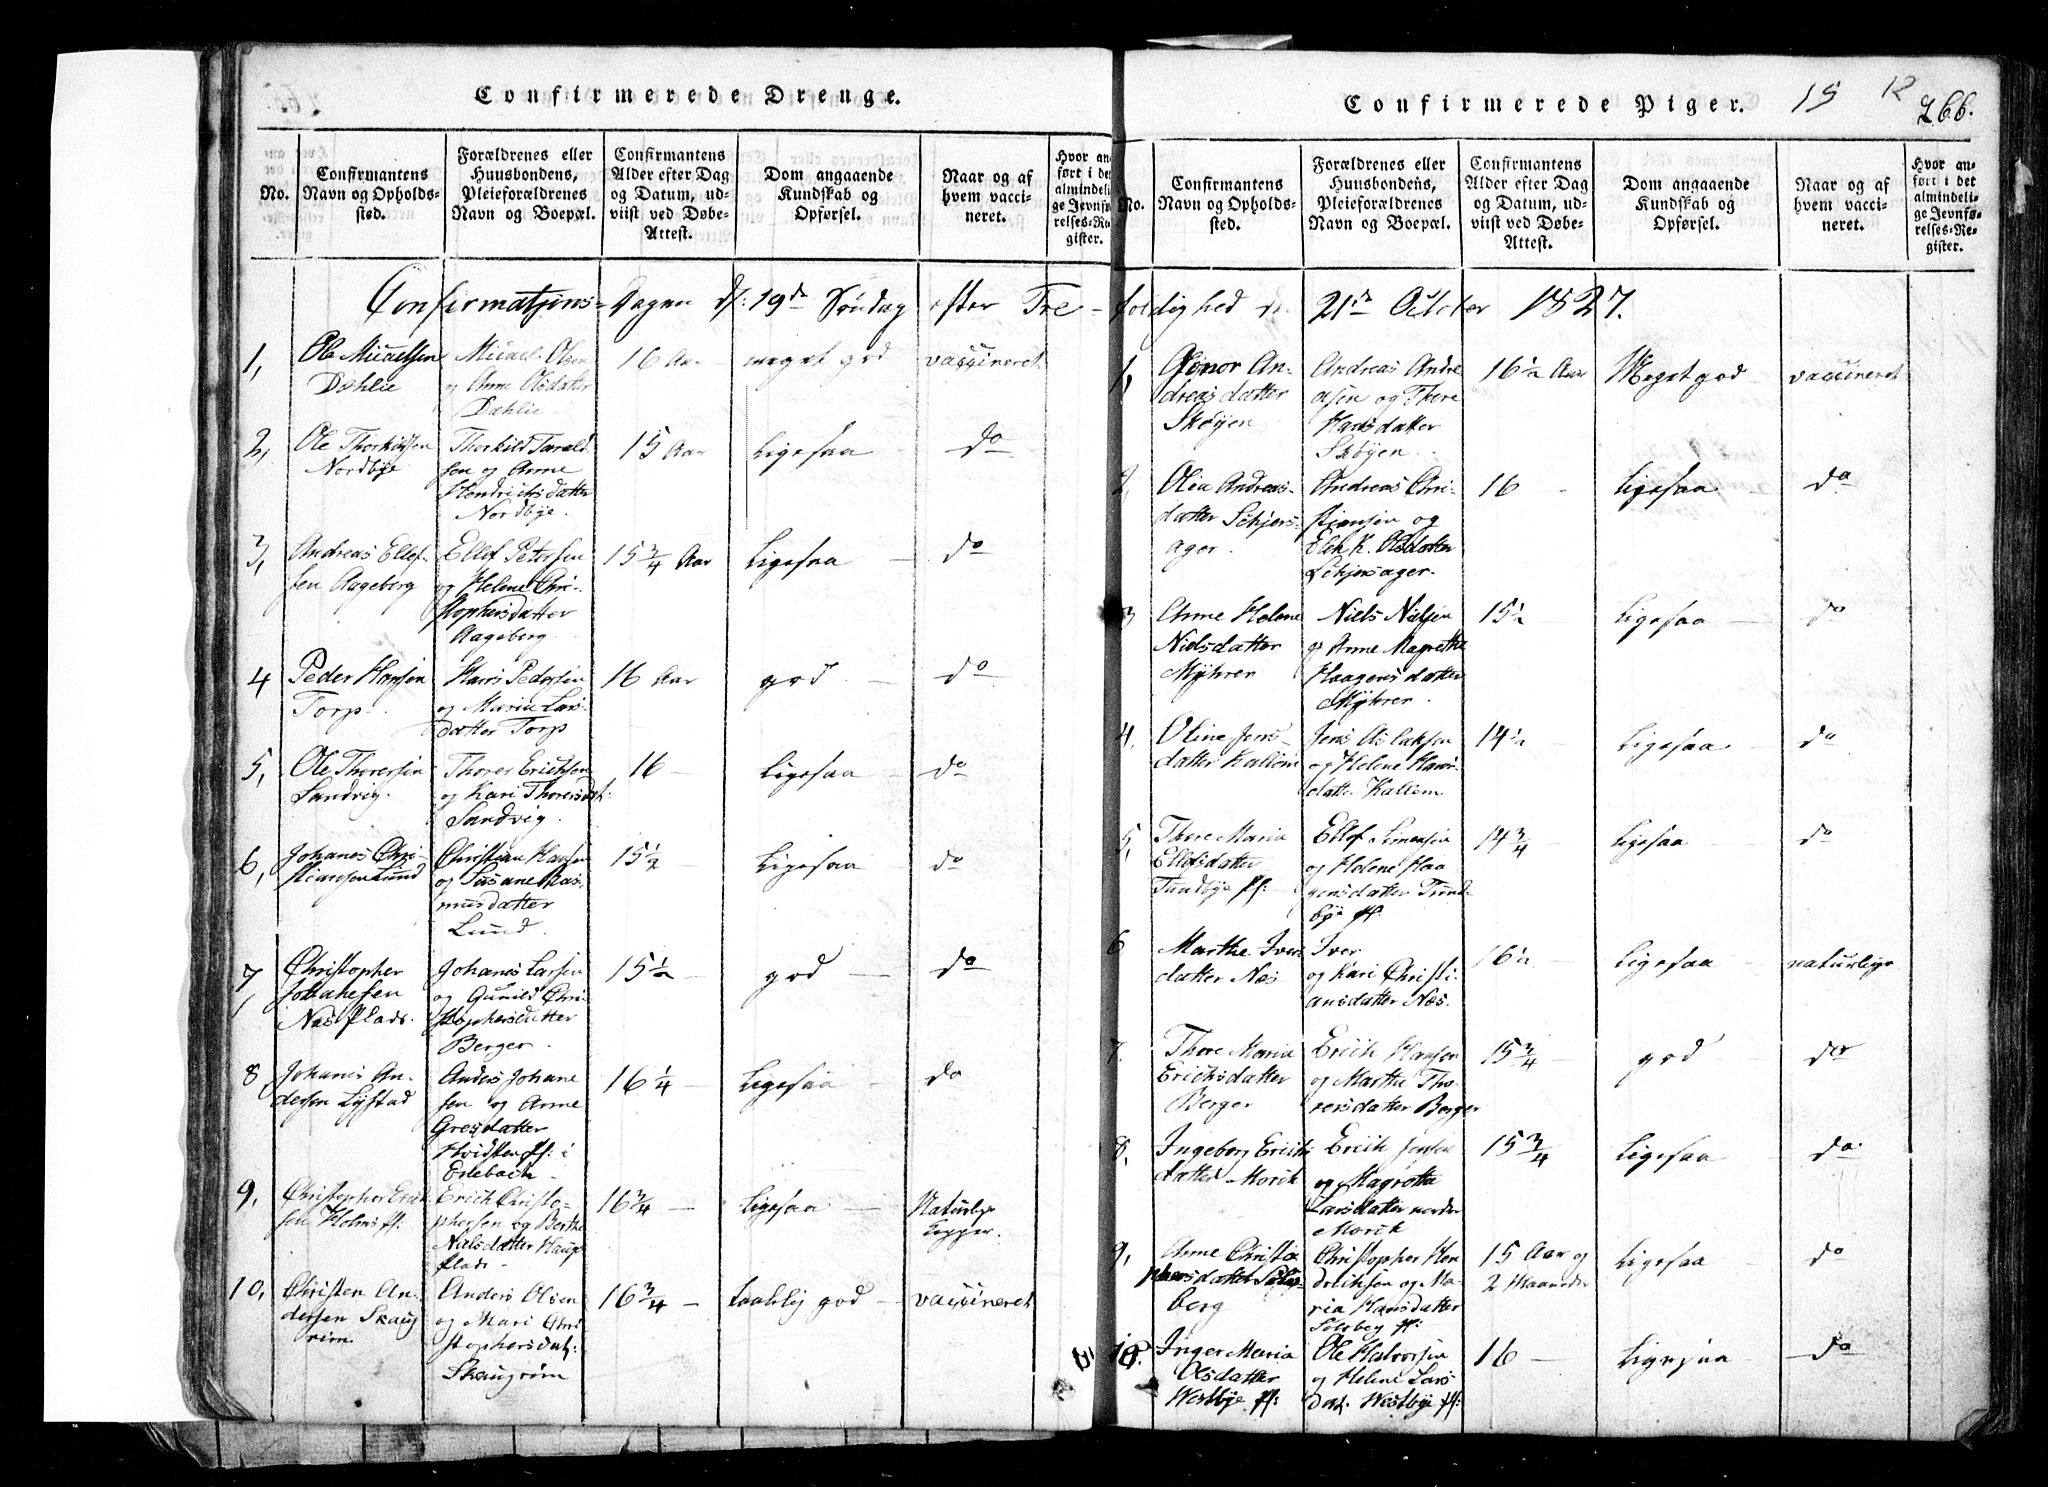 Confirmerede Drenge.
No.
Confirmantens
Navn og Opholds-
sted.
Forældrenes eller
Huusbondens,
Pleieforældrenes
Navn og Boepæl.
Confirmantens
Alder efter Dag
og Datum, ud-
viist ved Døbe-
Attest.
Dom angaaende
Kundskab og
Opførsel.
Naar og af
hvem vacci-
neret.
Hvor an-
ført i det
almindeli-
ge Jevnfø-
relses-Re-
gister.
Confirmations- Dagen d: 19de Søndag efter Tre-
1,
Ole Micaelsen
Dæhlie
Micael Olsen
og Anne Olsdatter
Dæhlie
16 Aar
meget god
vaccineret
2,
Ole Thorkildsen
Nordbye
Thorkild Tarald
sen og Anne
Hendrichsdatter
Nordbye.
15 Aar
Ligesaa
do
3,
Andreas Ellef
sen Aageberg
Ellef Petersen
og Helene Chri-
stophersdatter
Aageberg
15 3/4 Aar
Ligesaa
do
4
Peder Hansen
Torp
Hans Pedersen
og Maria Lars-
datter Torp
16 Aar
god
do
5,
Ole Thoresen
Sandvig.
Thores Erichsen
og Kari Thoresdat:
Sandvig.
16
Ligesaa
do
6,
Johanes Chri-
stiansen Lund
Christian Hansen
og Susane Ras-
musdatter
Lund.
15 1/2
Ligesaa
do
7
Christopher
Johanesen
Næs Plads.
Johanes Larsen
og Gunild Chri-
stophersdatter
Berger.
15 1/2
god
do
8
Johanes An-
dersen Lystad
Anders Johane
sen og Anne
Gresdatter
Hvidsten pl: i
Erlebach
16 1/4
Ligesaa
do
9,
Christopher Erich
sen Holms pl:
Erich Christo-
phersen og Berthe
Nielsdatter Haug
plads
16 3/4
Ligesaa
Naturlige
Kopper.
10,
Christen An-
dersen Skaug
rim
Anders Olsen
og Mari Chri
stophersdat:
Skaugrim
16 3/4
taalelig god
vaccineret
Confirmerede Piger.
15 12
266.
No.
Confirmantens
Navn og Opholds-
sted.
Forældrenes eller
Huusbondens,
Pleieforældrenes
Navn og Boepæl.
Confirmantens
Alder efter Dag
og Datum, ud-
viist ved Døbe-
Attest.
Dom angaaende
Kundskab og
Opførsel.
Naar og af
hvem vacci-
neret.
Hvor an-
ført i det
almindeli-
ge Jevnfø-
relses-Re-
gister.
foldighed d. 21de October 1827.
1,
Gonor An-
dreasdatter
Skøyen
Andreas Andre
asen og Thore
Hansdatter
Skøyen
16 1/2 Aar
Meget god
vaccineret
2,
Olea Andreas-
datter Schiers-
ager.
Andreas Chri-
stiansen og
Elen K. Olsdatter
Schiersager.
16
Ligesaa
do
3
Anne Helene
Nielsdatter
Myhrer
Niels Nielsen
og Anne Magrethe
Haagensdatter
Myhrer.
15 1/2
Ligesaa
do
4.
Oline Jens
datter Kallem
Jens Aslaksen
og Helene Hans-
datter Kallem
14 1/2
Ligesaa
do
5,
Thore Maria
Ellefsdatter
Tundbye pl:
Ellef Simensen
og Helene Haa
gensdatter Tund-
bye pl.
14 3/4
Ligesaa
do
6
Marthe Ivers
datter Næs
Iver
og Kari Christi
ansdatter Næs.
16 1/2
Ligesaa
naturlige
7.
Thore Maria
Erichsdatter
Berger
Erich Hansen
og Marthe Tho-
resdatter Berger
15 3/4
god
do
8,
Ingeborg Erichs
datter Morck
Erich Jensen
og Magrethe
Larsdatter nordre
Morck
15 3/4
Ligesaa
do.
9,
Anne Christo
phersdatter
berg
Christopher Hen
drichsen og Ma-
ria Hansdatter
Solberg pl:
15 Aar og
2 Maaneder
Ligesaa
do
10.
Inger Maria
Olsdatter
Westbye pl:
Ole Halvorsen
og Helene Lars
dat. Westbye pl:
16
Ligesaa
do